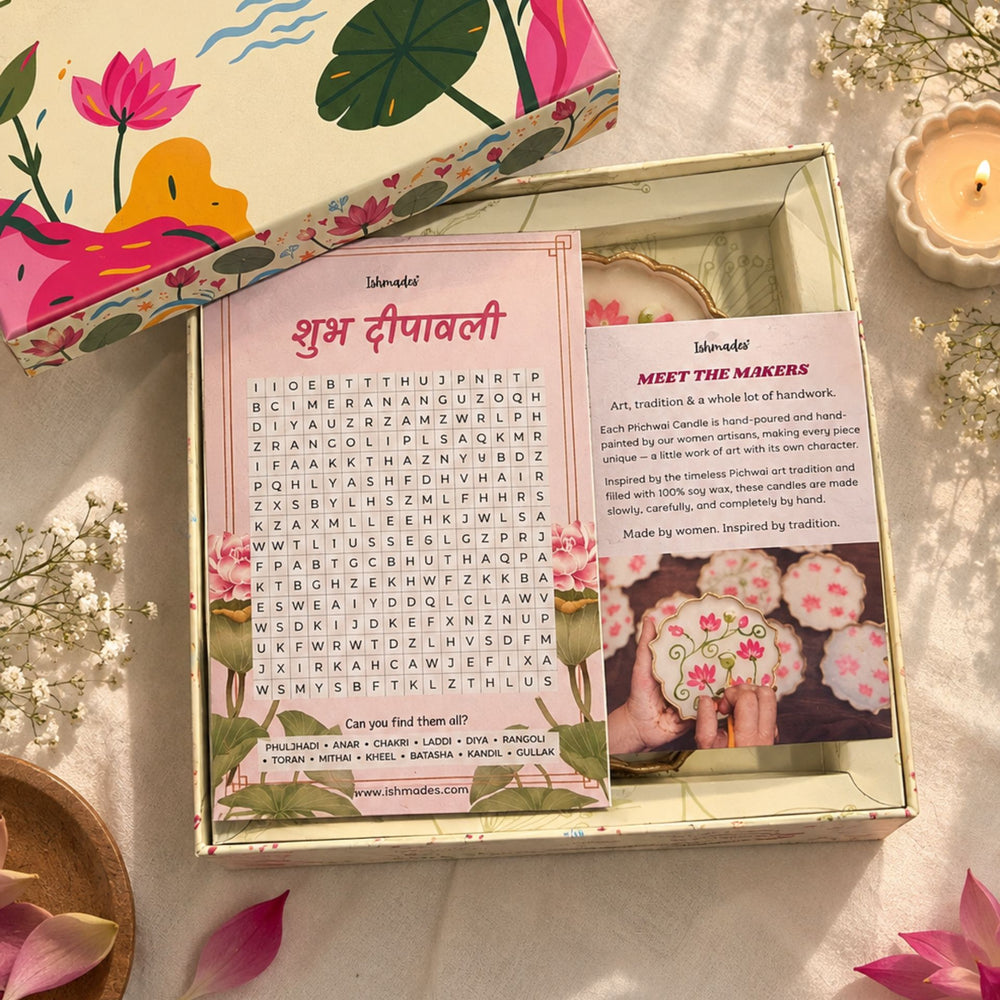 Ishmades
शुभ दीपावली
I I O E B T T T H U J P N R T P
B C I M E R A N A N G U Z O Q H
D I Y A U Z R Z A M Z W R L P H
Z R A N G O L I P L S A Q K M R
I F A A K K T H A Z N Y U B D Z
P Q H L Y A S H F D H V H A I R
Z X S B Y L H S Z M L F H H R S
K Z A X M L L E E H K J W L S A
W W T L 1 U S S E 6 L G Z P R J
F P A B T G C B H U T H A Q P A
K T B G H Z E K H W F Z K K B A
E S W E A I Y D D Q L C L A W V
W S D K I J D K E F X N Z N U P
U K F W R W T D Z L H V S D F M
J X I R K A H C A W J E F I X A
W S M Y S B F T K L Z T H L U S
Can you find them all?
PHULJHADI • ANAR • CHAKRI • LADDI • DIYA • RANGOLI
• TORAN • MITHAI • KHEEL • BATASHA • KANDIL • GULLAK
www.ishmades.com
Ishmades
MEET THE MAKERS
Art, tradition & a whole lot of handwork.
Each Pichwai Candle is hand-poured and hand-
painted by our women artisans, making every piece
unique — a little work of art with its own character.
Inspired by the timeless Pichwai art tradition and
filled with 100% soy wax, these candles are made
slowly, carefully, and completely by hand.
Made by women. Inspired by tradition.